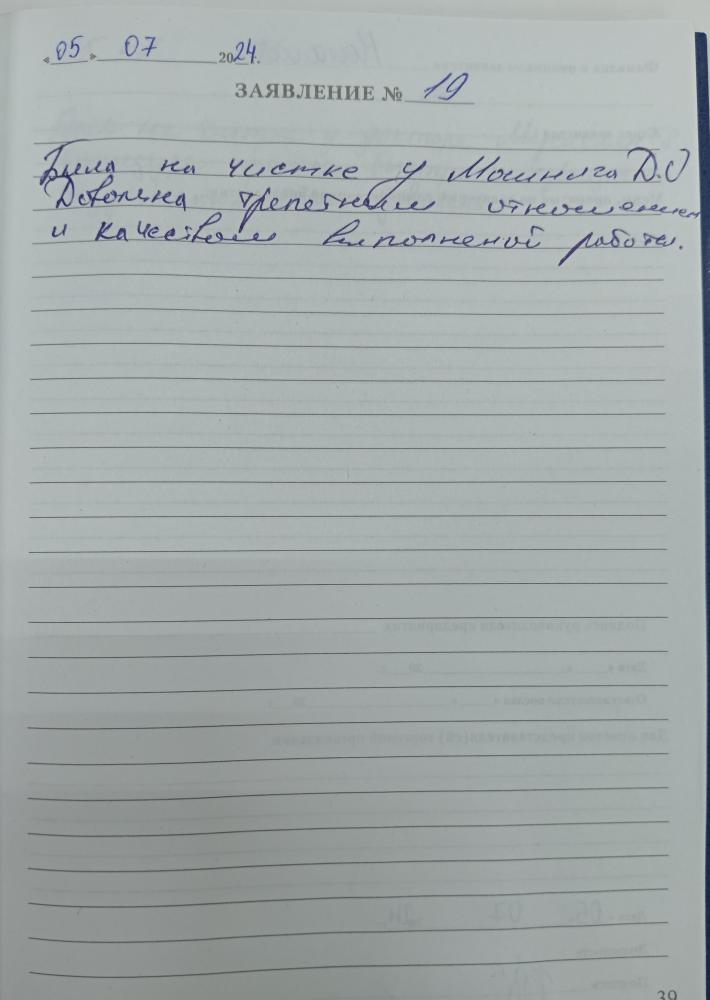 «05» 07 2024.
ЗАЯВЛЕНИЕ № 19
Была на чистке у Мошняга Д.О
Довольна трепетным отношением
и качеством выполненой работы.
39